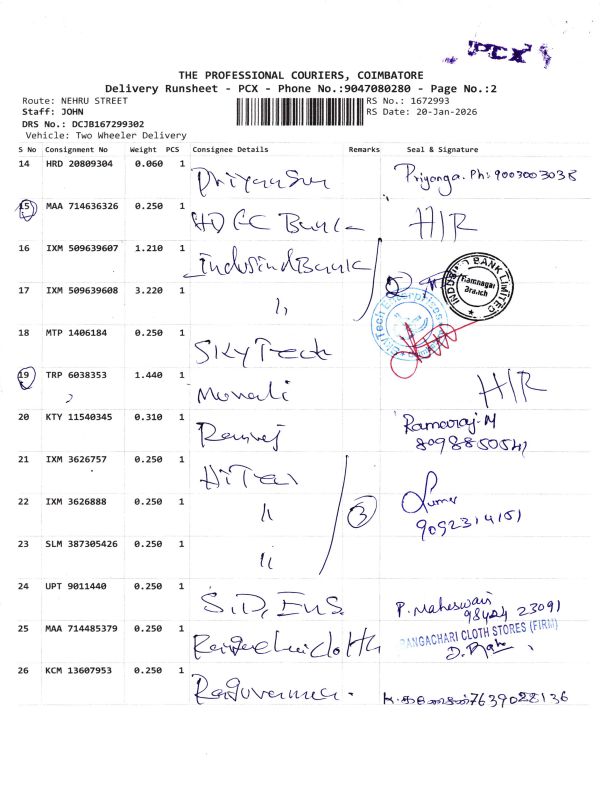 PCX
THE PROFESSIONAL COURIERS, COIMBATORE
Delivery Runsheet - PCX - Phone No.:9047080280 - Page No.:2
Route: NEHRU STREET
RS No.: 1672993
Staff: JOHN
RS Date: 20-Jan-2026
DRS No.: DCJB167299302
Vehicle: Two Wheeler Delivery
S No Consignment No Weight PCS Consignee Details Remarks Seal & Signature
14 HRD 20809304 0.060 1 Priyanga. Ph: 9003003038
15 MAA 714636326 0.250 1 HDFC Bank H/R
16 IXM 509639607 1.210 1 IndusindBank
INDUSIND BANK LIMITED
Ramnagar
Branch
17 IXM 509639608 3.220 1 〃 2
SkyTech Enterprises
18 MTP 1406184 0.250 1 SkyTech
19 TRP 6038353 1.440 1 H/R
20 KTY 11540345 0.310 1 Ramraj Ramaraj.M
8098850541
21 IXM 3626757 0.250 1 HiTex
22 IXM 3626888 0.250 1 〃 3 Kumar
9092314151
23 SLM 387305426 0.250 1 〃
24 UPT 9011440 0.250 1 S.D. Ens. P. Maheswari
98424 23091
25 MAA 714485379 0.250 1 Rangachari cloth
RANGACHARI CLOTH STORES (FIRM)
26 KCM 13607953 0.250 1 7639028136